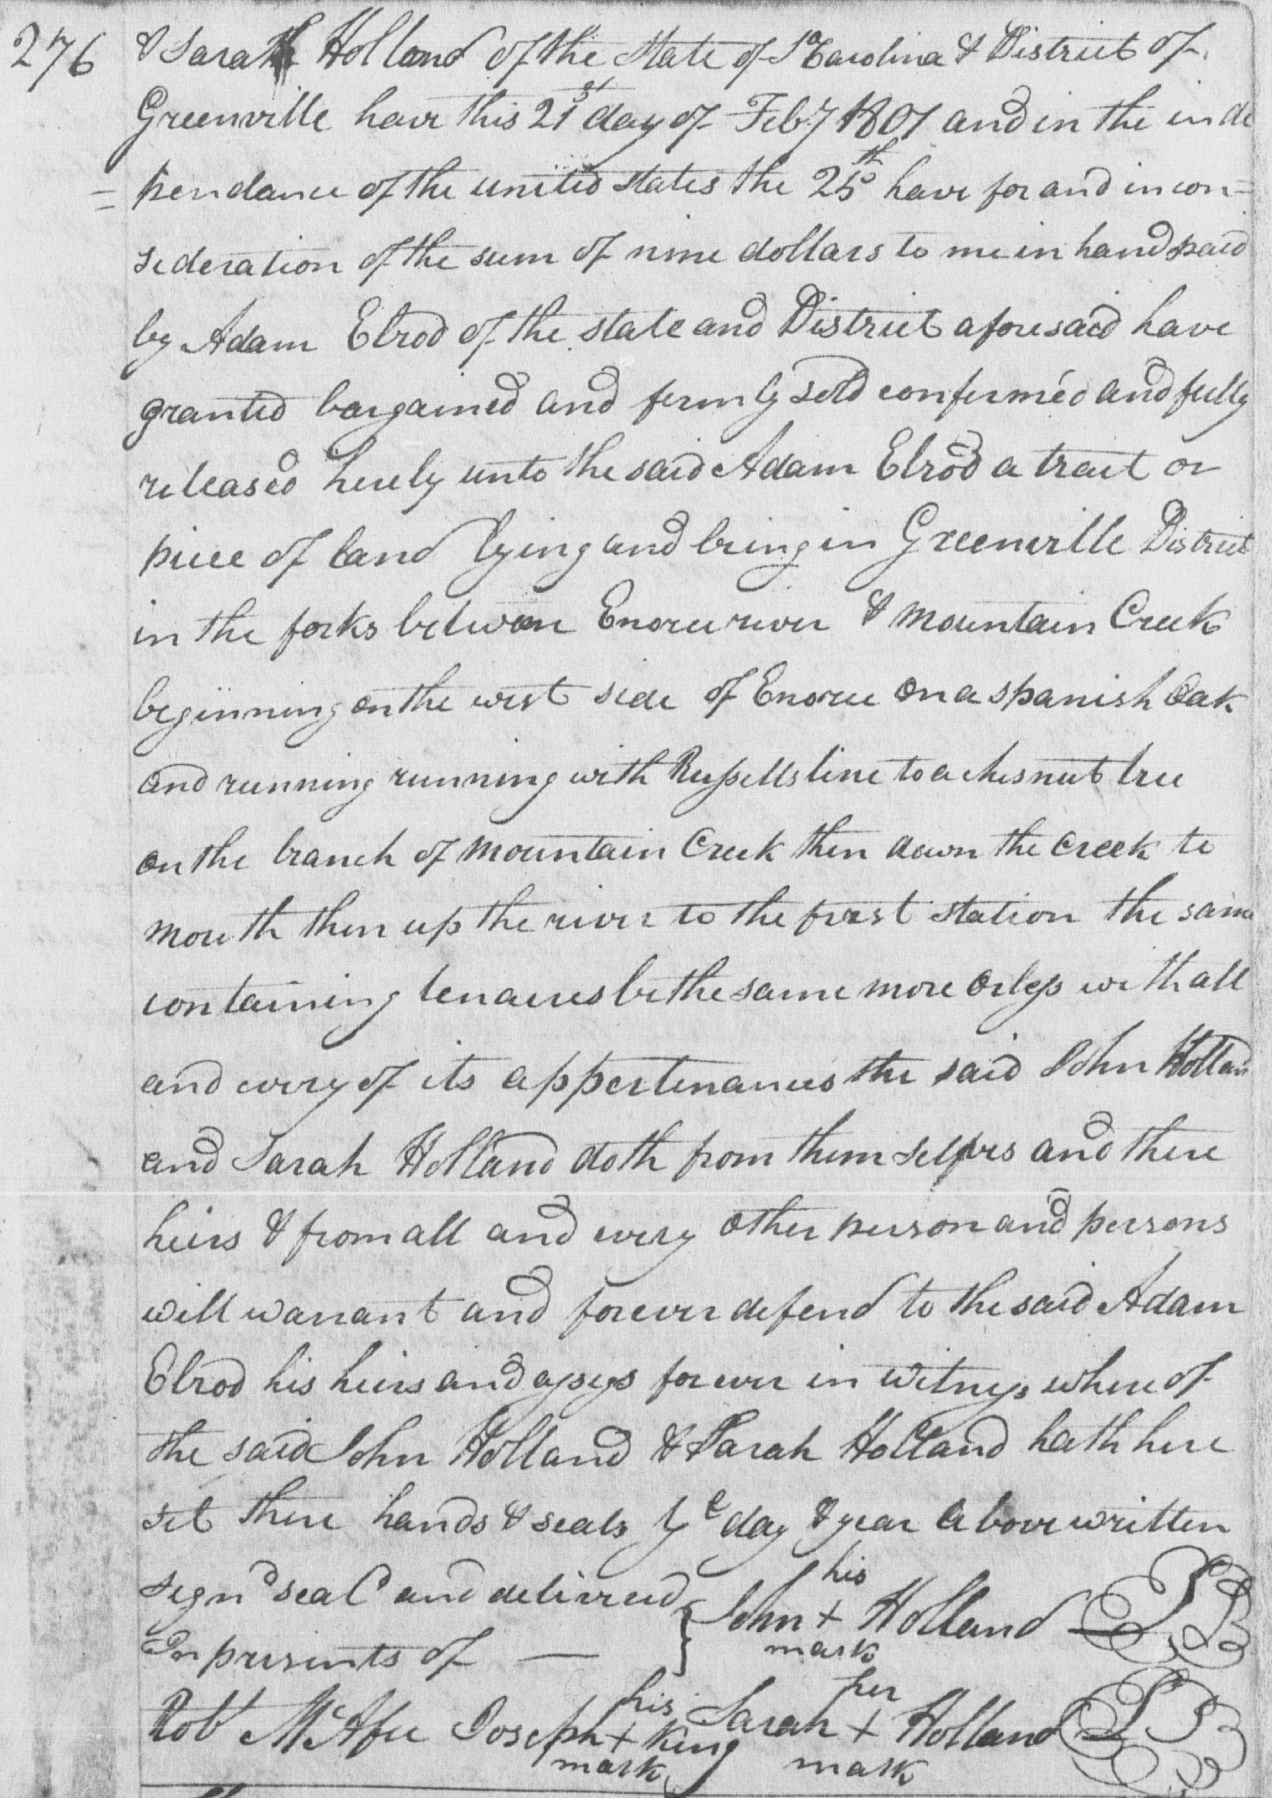 276
& Sarah Holland of the State of So Carolina & District of
Greenville have this 21st day of Feby 1801 and in the inde
= pendance of the united states the 25th have for and in con=
sideration of the sum of nine dollars to me in hand paid
by Adam Elrod of the state and District aforesaid have
granted bargained and firmly sold confirmed and fully
released hereby unto the said Adam Elrod a tract or
piece of land lying and being in Greenville District
in the forks between Enoree river & Mountain Creek
beginning on the west side of Enoree on a spanish Oak
and running running with Russells line to a chesnut tree
on the branch of Mountain Creek then down the Creek to
mouth then up the river to the first station the same
containing ten acres be the same more or less with all
and every of its appertenances the said John Holland
and Sarah Holland doth from themselves and there
heirs & from all and every other person and persons
will warrant and forever defend to the said Adam
Elrod his heirs and assigs forever in witness where of
the said John Holland & Sarah Holland hath here
set there hands & seals ye day & year above written
Signd seal and delivered } his
In presents of — John + Holland LS
mark
Robt McAfee Joseph his + King mark Sarah her + Holland LS
mark